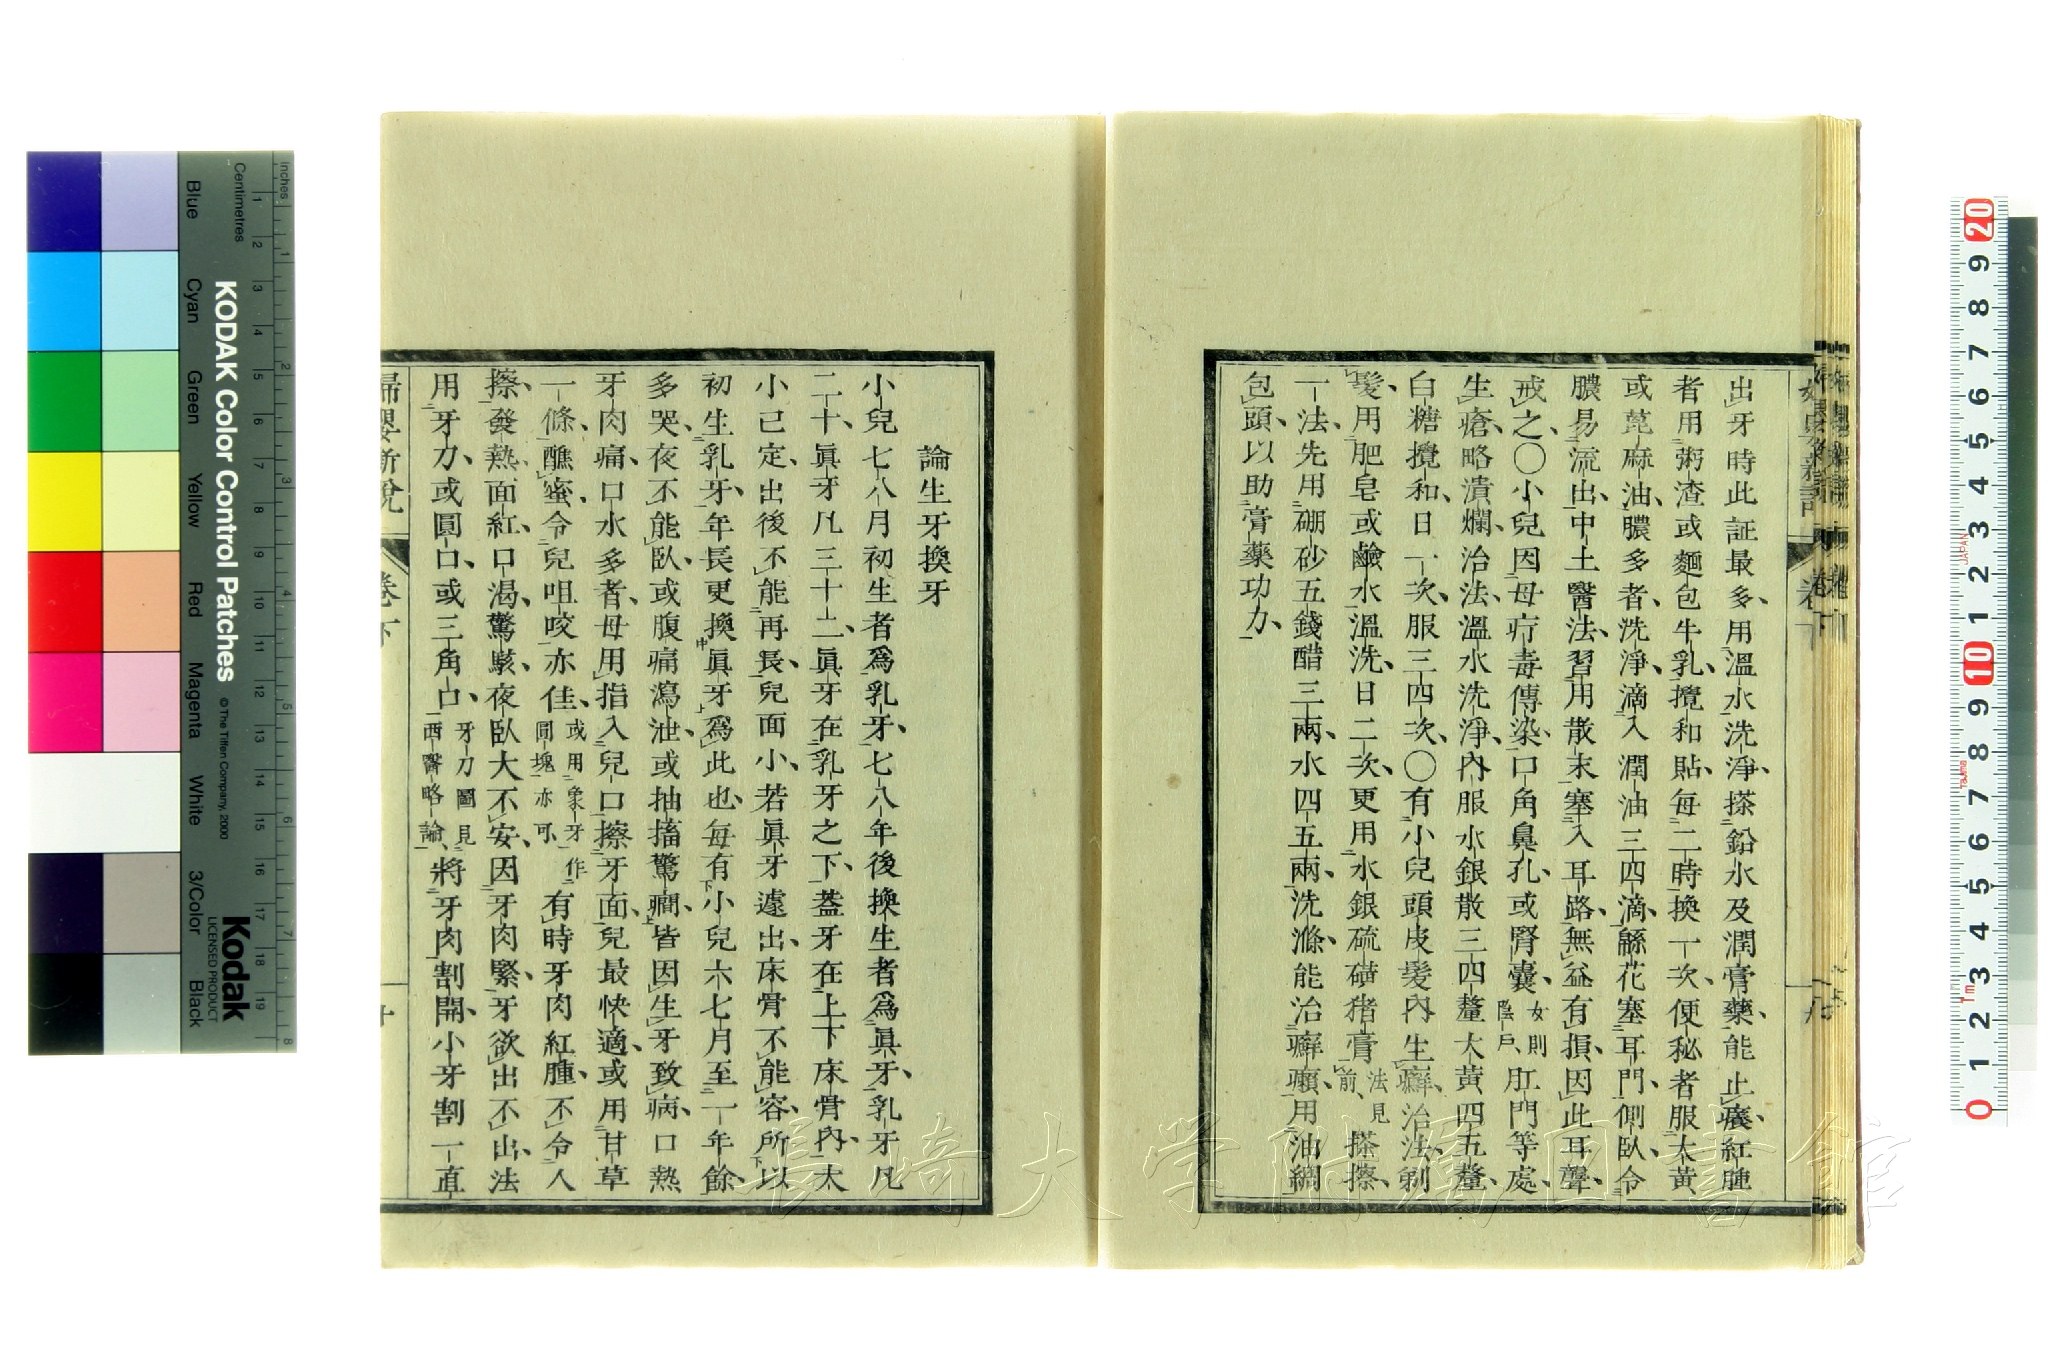 出牙時此証最多、用溫水洗淨、搽鉛水及潤膏藥、能止癢紅腫
者用粥渣或麵包牛乳、攪和貼、每二時換一次、便秘者服大黃
或蓖麻油、膿多者洗淨、滴入潤油三四滴、緜花塞耳門、側臥令
膿易流出、中土醫法、習用散末塞入耳路、無益有損、因此耳聾、
戒之、○小兒因母疔毒傳染、口角鼻孔、或腎囊、女則陰戶、肛門等處、
生瘡略潰爛、治法溫水洗淨、內服水銀散三四釐大黃四五釐、
白糖攪和、日一次、服三四次、○有小兒頭皮髮內生癬、治法、剃
髮、用肥皂或鹼水溫洗、日二次、更用水銀硫磺猪膏法見前、搽擦、
一法先用硼砂五錢醋三兩、水四五兩、洗滌、能治癬癩、用油綢
包頭、以助膏藥功力、
論生牙換牙
小兒七八月初生者爲乳牙、七八年後換生者爲眞牙、乳牙凡
二十、眞牙凡三十二、眞牙在乳牙之下、蓋牙在上下床骨內、大
小已定、出後不能再長、兒面小、若眞牙遽出、床骨不能容、所以
初生乳牙、年長更換眞牙爲此也、每有小兒六七月至一年餘、
多哭夜不能臥、或腹痛瀉泄、或抽搐驚癇、皆因生牙致病、口熱
牙肉痛、口水多者、母用指入兒口擦牙面、兒最快適、或用甘草
一條、醮蜜令兒咀咬亦佳、或用象牙作圓塊亦可、有時牙肉紅腫、不令人
擦、發熱面紅、口渴、驚駭夜臥大不安、因牙肉緊、牙欲出不出、法
用牙刀、或圓口、或三角凸、牙刀圖見西醫略論、將牙肉割開、小牙割一直
婦嬰新說
卷下
十
KODAK Color Control Patches
© The Tiffen Company, 2000
Kodak
LICENSED PRODUCT
Inches
Centimetres
Blue
Cyan
Green
Yellow
Red
Magenta
White
3/Color
Black
長崎大学附属図書館